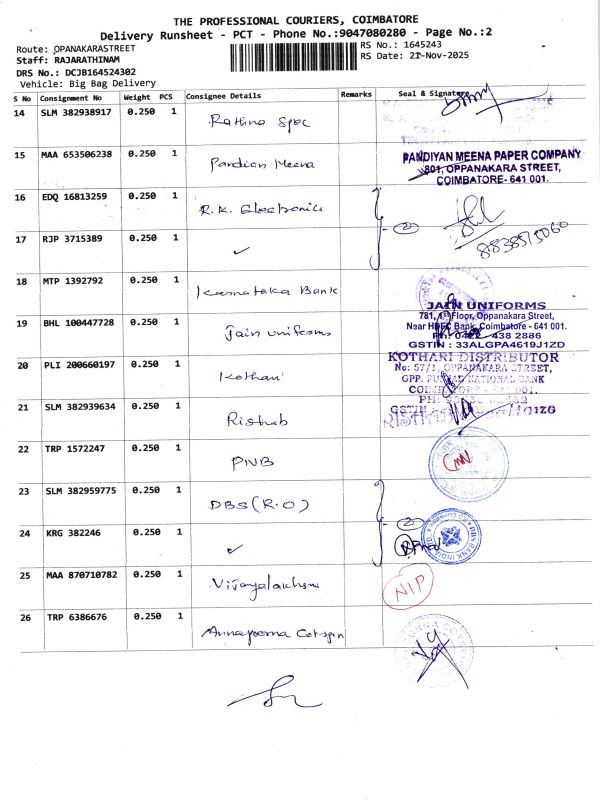 THE PROFESSIONAL COURIERS, COIMBATORE
Delivery Runsheet - PCT - Phone No.:9047080280 - Page No.:2
Route: OPANAKARASTREET
RS No.: 1645243
Staff: RAJARATHINAM
RS Date: 21-Nov-2025
DRS No.: DCJB164524302
Vehicle: Big Bag Delivery
S No Consignment No Weight PCS Consignee Details Remarks Seal & Signature
14 SLM 382938917 0.250 1 Rathna Spec
15 MAA 653506238 0.250 1 Pandian Meena
PANDIYAN MEENA PAPER COMPANY
801, OPPANAKARA STREET,
COIMBATORE- 641 001.
16 EDQ 16813259 0.250 1 R.K. Electronics
2
17 RJP 3715389 0.250 1 ✓
18 MTP 1392792 0.250 1 Karnataka Bank
19 BHL 100447728 0.250 1 Jain uniforms
JAIN UNIFORMS
781, Floor, Oppanakara Street,
Near HDFC Bank, Coimbatore - 641 001.
Ph: 0422 438 2886
GSTIN : 33ALGPA4619J1ZD
20 PLI 200660197 0.250 1 Kothari
KOTHARI DISTRIBUTOR
No: 57/1, OPPANAKARA STREET,
OPP. PUNJAB NATIONAL BANK
COIMBATORE - 641 001.
PH:
GSTIN
21 SLM 382939634 0.250 1 Rishab
22 TRP 1572247 0.250 1 PNB
23 SLM 382959775 0.250 1 DBS (R.O)
2
24 KRG 382246 0.250 1 ✓
DBS BANK INDIA LTD
25 MAA 870710782 0.250 1 Vijayalakshmi
NIP
26 TRP 6386676 0.250 1 Annapoorna Cot-spin